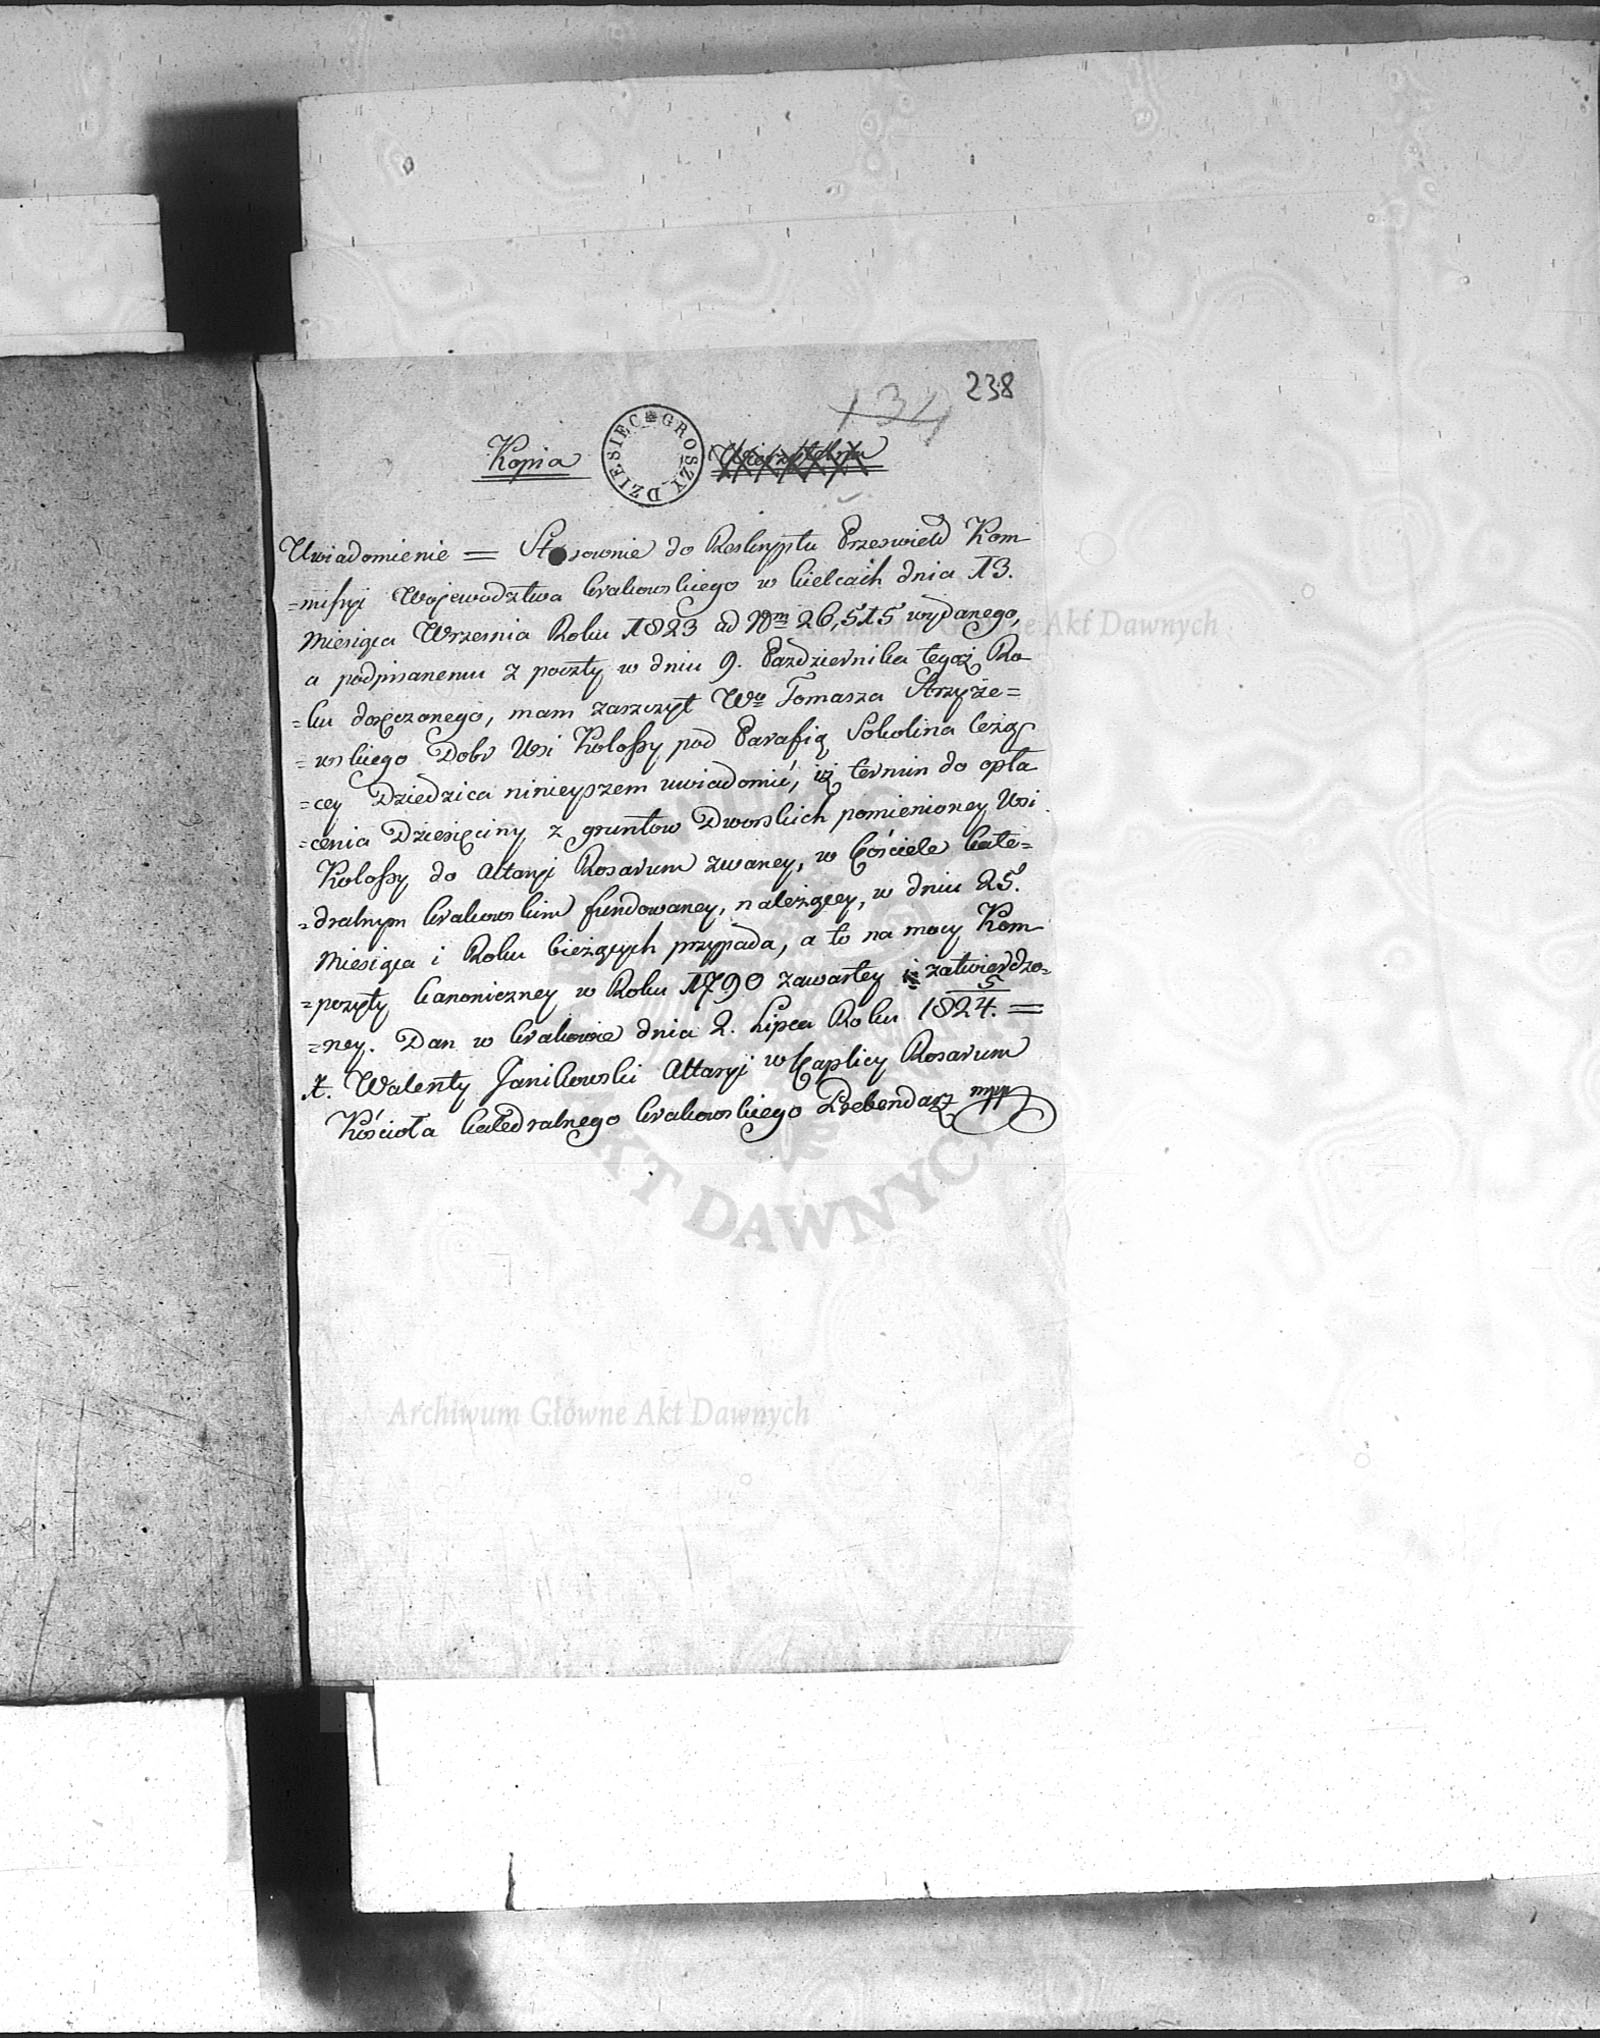 238
134
Kopia
DZIESIĘĆ GROSZY
Uwiadomienie = Stosownie do Reskryptu Prześwietn Kom
=missyi Woiewodztwa Krakowskiego w Kielcach dnia 13.
Miesiąca Wrzesnia Roku 1823 ad Nrm 26,515 wydanego,
a podpisanemu z poczty w dniu 9. Pazdziernika tegoż Ro
=ku doręczonego, mam zaszczyt Wo Tomasza Strzyże=
=wskiego Dobr Wsi Kolossy pod Parafią Sokolina leżą
=cey Dziedzica ninieyszem uwiadomić, iż termin do opła
=cenia Dziesięciny z gruntow Dworskich pomienioney Wsi
Kolossy do Altaryi Rosarum zwaney, w Kościele Kate=
=dralnym Krakowskim fundowaney, należącey, w dniu 25.
Miesiąca i Roku bieżących przypada, a to na mocy Kom
=pozyty kanoniczney w Roku 1790 zawartey i zatwierdzo=
=ney. Dan w Krakowie dnia 2. Lipca Roku 1824. =
5
X. Walenty Janikowski Altaryi w Kaplicy Rosarum
Kościoła Katedralnego Krakowskiego Prebendarz mpp
Archiwum Główne Akt Dawnych
Archiwum Główne Akt Dawnych
AKT DAWNYCH